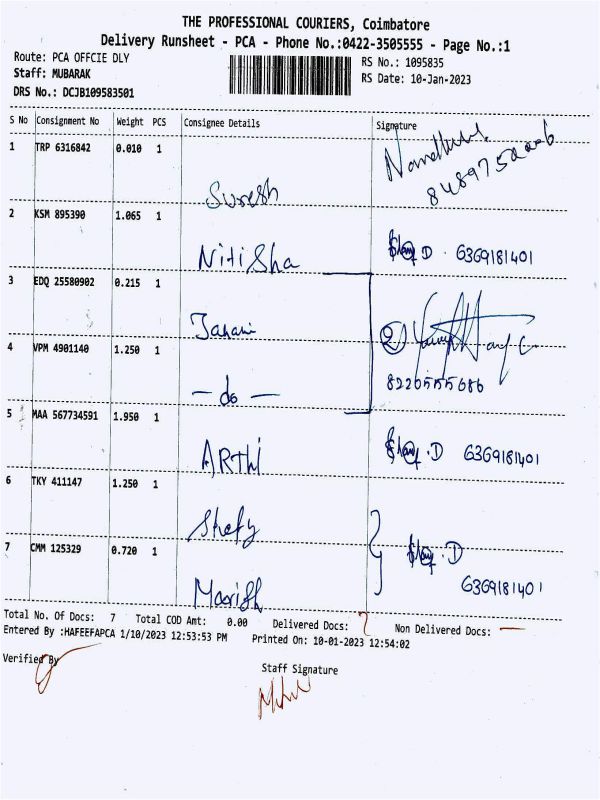 THE PROFESSIONAL COURIERS, Coimbatore
Delivery Runsheet - PCA - Phone No.:0422-3505555 - Page No.:1
Route: PCA OFFCIE DLY
RS No.: 1095835
Staff: MUBARAK
RS Date: 10-Jan-2023
DRS No.: DCJB109583501
S No Consignment No Weight PCS Consignee Details Signature
1 TRP 6316842 0.010 1
Suresh
2 KSM 895390 1.065 1
NitiSha D 6369181401
3 EDQ 25580902 0.215 1
Janani
4 VPM 4901140 1.250 1
- do -
5 MAA 567734591 1.950 1
ARThi D 6369181401
6 TKY 411147 1.250 1
7 CMM 125329 0.720 1
D
6369181401
Total No. Of Docs: 7 Total COD Amt: 0.00 Delivered Docs: 7 Non Delivered Docs: —
Entered By :HAFEEFAPCA 1/10/2023 12:53:53 PM Printed On: 10-01-2023 12:54:02
Verified By
Staff Signature